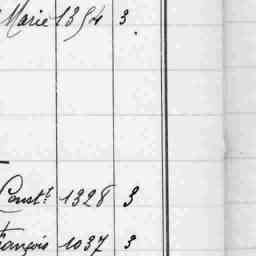 Marie 1354 3
Const.t 1328 3
François 1037 3